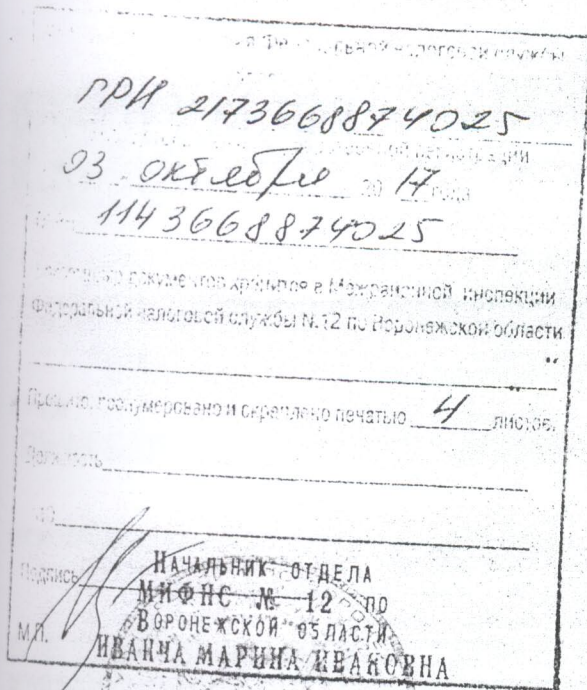 льной налоговой службы
ГРН 2173668874025
регистрации
03 октября 20 17 года
1143668874025
документов хранится в Межрайонной инспекции
Федеральной налоговой службы N.12 по Воронежской области
Прошито, пронумеровано и скреплено печатью 4 листов.
Должность
Подпись
НАЧАЛЬНИК ОТДЕЛА
МИФНС № 12 ПО
ВОРОНЕЖСКОЙ ОБЛАСТИ
М.П.
ИВАНЧА МАРИНА ИВАНОВНА